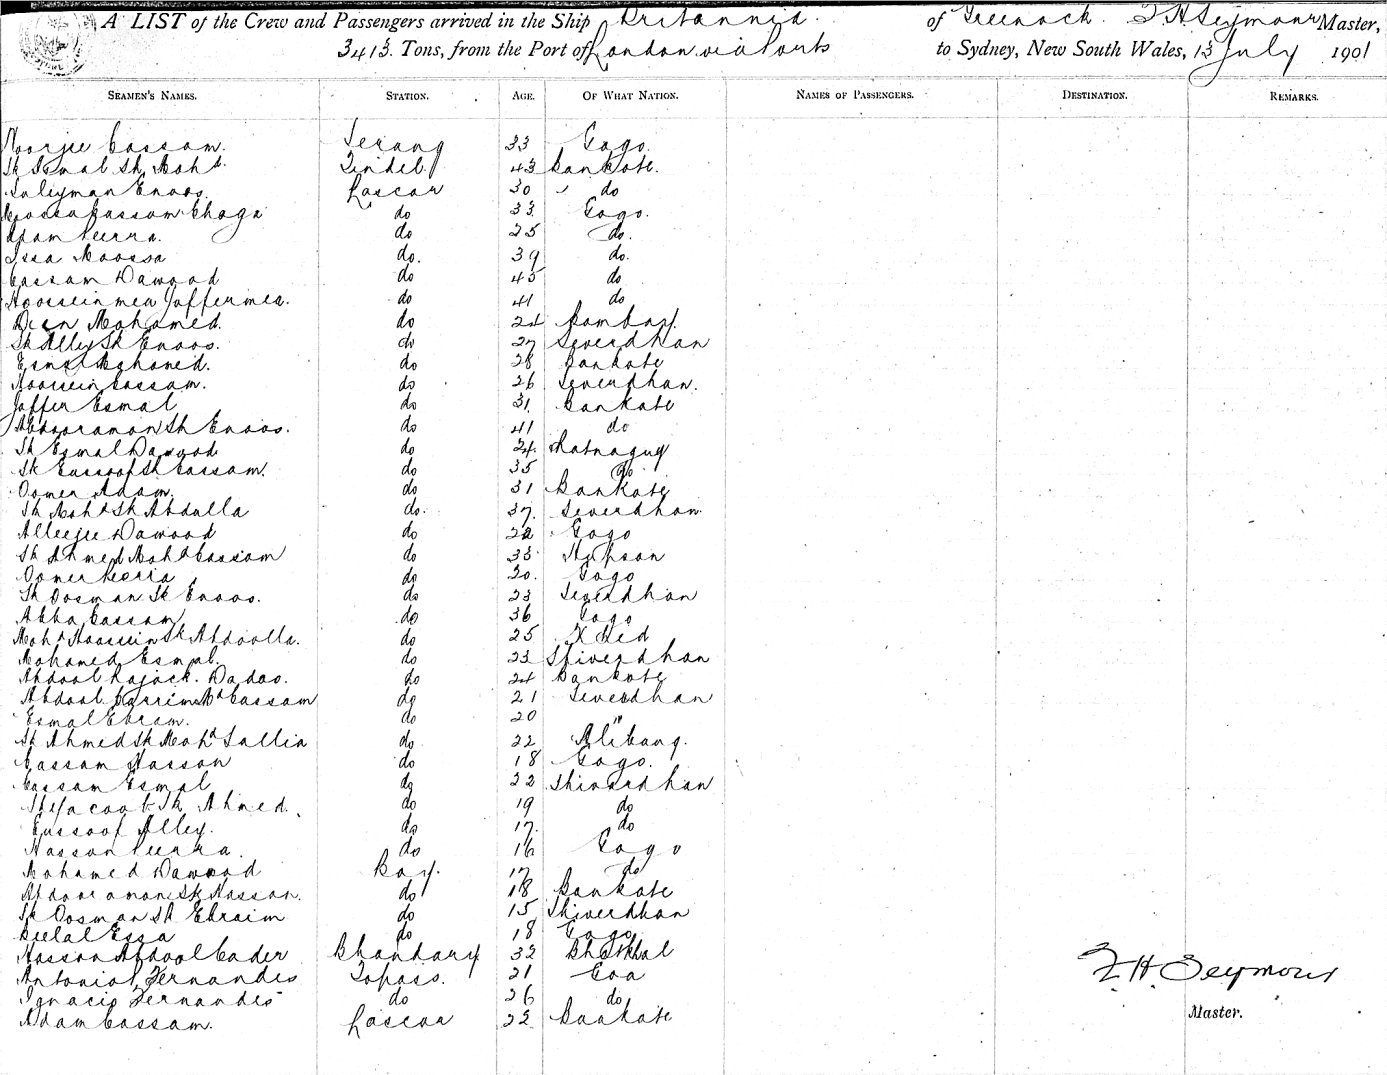 A LIST of the Crew and Passengers arrived in the Ship Britannia. of Greenock. F H Seymour Master,
3413. Tons, from the Port of London via Ports to Sydney, New South Wales, 13 July 1901
SEAMEN'S NAMES. STATION. AGE. OF WHAT NATION. NAMES OF PASSENGERS. DESTINATION. REMARKS.
Noorjee Cassam. Serang 33 Gogo.
Sk Ismal Sk Mohd. Tindel 43 Bankote.
Suleyman Enoos. Lascar 30 " do
Moosa Cassam Chaga do 33 Gogo.
Adam Peerra. do 25 do.
Issa Moossa do. 39 do.
Cassam Dawood do 45 do
Hoossein mea Jaffermea. do 41 do
Deen Mohamed. do 24 Bombay.
Sk Alley Sk Enoos. do 27 Severdhan
Esmal Mohamed. do 28 Bankote
Hoossein Cassam. do 26 Severdhan.
Jaffer Esmal do 31 Bankote
Abdooramon Sk Enoos. do 41 do
Sk Esmal Dawood do 24 Ratnagug
Sk Eussoof Sk Cassam. do 35 do
Oomer Adam. do 31 Bankote
Sk Mohd Sk Abdulla do. 37. Severdhan
Alleejee Dawood do 22 Gogo
Sk Ahmed Mohd Cassam do 33 Hupson
Oomer Peerra do 30. Gogo
Sk Oosman Sk Enoos. do 23 Severdhan
Abba Cassam do 36 Gogo
Mohd Hoossein Sk Abdoolla. do 25 Khed
Mohamed Esmal. do 23 Shiverdhan
Abdool Rajack. Dadoo. do 24 Bankote
Abdool Carrim Md Cassam do 21 Severdhan
Esmal Ebram. do 20 "
Sk Ahmed Sk Mohd Sallia do 22 Alibang.
Cassam Hassan do 18 Gogo.
Cassam Esmal do 22 Shivardhan
Sk Yacoob Sk Ahmed. do 19 do
Eussoof Alley. do 17. do
Hassan Peerra. do 16 Gogo
Mohamed Dawood Boy. 17 do
Abdooramon Sk Hassan. do 18 Bankote
Sk Oosman Sk Ebraim do 15 Shiverdhan
Beelal Essa do 18 Gogo
Hassan Abdool Cader Bhandary 32 Bhatkhal
Antonio Fernandes Topass. 21 Goa
Ignacio Fernandes do 26 do
Adam Cassam. Lascar 22 Bankote
F. H. Seymour
Master.